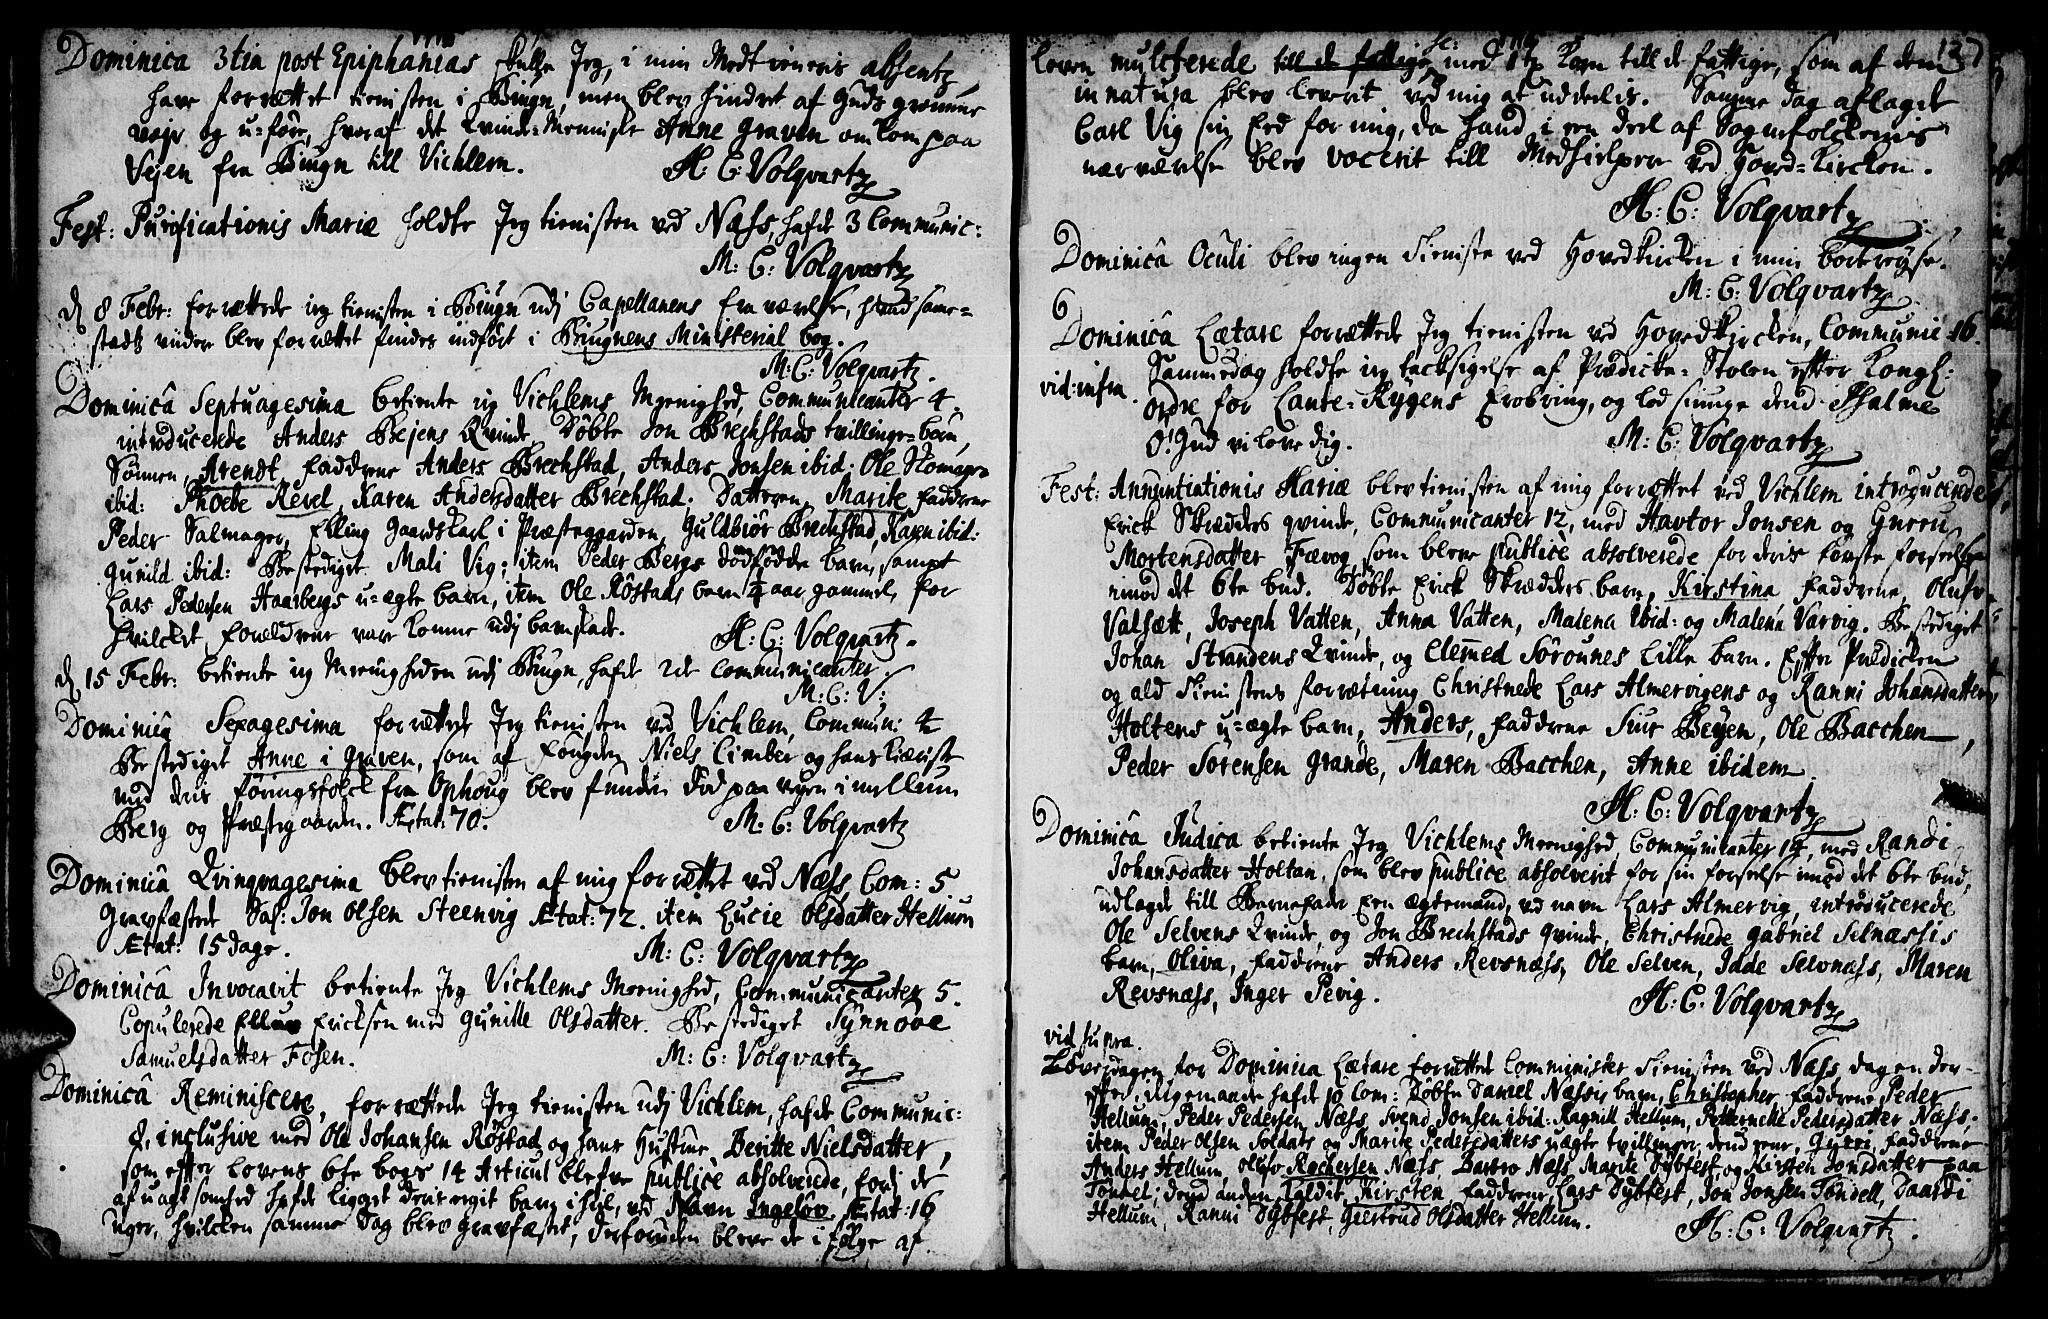 Dominica 3tia post Epiphanias skulle Jeg, i min Medtieneris absentz
have forrættet tienisten i Biugn, men blev hindret af Guds grumme
vejr og u=føre, hvoraf det Qvinde=Menniske Anne Graven omkom paa
Vejen fra Biugn till Vichlem. H: C: Volqvartz
Fest: Purificationis Mariæ holdte Jeg tienisten ved Næss, hafde 3 Communic:
M: C: Volqvartz
d 8 Febr: forrættede ieg tienisten i Biugn udj Capellanens fraværelse, hvad samme=
stedtz videre blev forrættet findes indført i Biugnens Ministerial bog.
M: C: Volqvartz.
Dominicâ Septuagesima betiente ieg Vichlems Meenighed, Communicanter 4
introducerede Anders Bejens Qvinde, Døbte Jon Brechstads tvillinge=børn,
Sønnen, Arendt, fadderne Anders Brechstad, Anders Jonsen ibid: Ole Skomager
ibid: Phoebe Revel, Karen Andersdatter Brechstad. Datteren, Marite, fadderne
Peder Salmager, Elling Gaardskarl i Præstegaarden, Guldbiör Brechstad, Karen ibid:
Gunild ibid: Bestediget Mali Vig; item Peder Bergs dødfødde barn, sampt
Lars Pedersen Haarbergs u=ægte barn, item Ole Röstads barn ¼ aar gammel, for
hvilcket forældrene vare komne udj barnslade.
H: C: Volqvartz.
d 15 Febr: betiente ieg Meenigheden udj Biugn, hafde 22 Communicanter.
M: C: V:
Dominicâ Sexagesima forrættede Jeg tienisten ved Vichlem, Commun: 4
Bestediget Anne i Graven, som af fougden Niels Cimber og hans Kiæriste
med deris føringsfolck fra Ophoug blev funden død paa vejen imellum
Berg og Præstegaarden. Ætat: 70. M: C: Volqvartz
Dominicâ Qvinqvagesima blev tienisten af mig forrættet ved Næss, Com: 5
Gravfæstede Sal: Jon Olsen Steenvig Ætat: 72. item Lucie Olsdatter Hellum
Ætat: 15 dage. M: C: Volqvartz
Dominicâ Invocavit betiente Jeg Vichlems Meenighed, Communicanter 5.
Copulerede Ellug Ericksen med Gunille Olsdatter. Bestediget Synnöve
Samuelsdatter Fosen. M: C: Volqvartz
Dominicâ Reminiscere, forrættede Jeg tienisten udj Vichlem, hafde Communic:
8, inclusive med Ole Johansen Röstad og hans Hustrue, Beritte Nielsdatter,
som efter Lovens 6te bogs 14 Articul blefve publicè absolverede, fordj de
af uagtsomhed hafde ligget deris eget barn ihiel, ved Navn Ingeløv, Ætat: 16
uger, hvilcken samme Dag blev gravfæstet, derforuden bleve de i følge af
137
Loven mulcterede till de fattige, med 1 Korn till de fattige, som af dem
in natura blev leverit ved mig at uddelis. Samme dag aflagde
Carl Vig sin Eed for mig, da hand i een deel af Sognefolckenis
nærværelse blev vocerit till Medhielper ved Hoved=Kircken.
H: C: Volqvartz
Dominicâ Oculi blev ingen tieniste ved Hovedkircken i min bortreyse.
M: C: Volqvartz
Dominicâ Lætare forrættede Jeg tienisten ved Hovedkircken, Communic 16.
vid: infra. Sammedag holdte ieg tacksigelse af Prædicke=Stolen efter Kongl:
Ordre for Lante=Rygens Erobring, og lod siunge dend Psalme
O! Gud vi love dig. M: C: Volqvartz
Fest: Annuntiationis Mariæ blev tienisten af mig forrættet ved Vichlem introducerede
Erick Skredders qvinde, Communicanter 12, med Havtor Jonsen og Guru
Mortensdatter Fævog, som bleve publicè absolverede for deris første forseelse
imod det 6te bud. Døbte Erick Skrædders barn, Kirstina fadderne, Oluf
Valsætt, Joseph Vatten, Anna Vatten, Malena ibid: og Malena Varvig. Bestediget
Johan Strandens Qvinde, og Clemed Sörounes lille barn. Efter Prædicken
og ald tienistens forrætning Christnede Lars Almervigens og Ranni Johansdatter
Holtens u=ægte barn, Anders, fadderne Siur Bejen, Ole Bacchen,
Peder Sörensen Grande, Maren Bacchen, Anne ibidem.
H: C: Volqvartz
Dominicâ Judica betiente Jeg Vichlems Meenighed Communicanter 14, med Randi
Johansdatter Holtan, som blev publice absolverit for sin forseelse imod det 6te bud,
udlagde till Barnefader een ægtemand, ved navn Lars Almervig, introducerede
Ole Selvens Qvinde, og Jon Brechstads qvinde, Christnede Gabriel Selnæssis
barn, Oliva, fadderne Anders Revsnæss, Ole Selven, Idde Selvnæss, Maren
Revsnæss, Inger Pevig. H: C: Volqvartz
vid supra.
Löverdagen for Dominica Lætare forrættede Comminister tienisten ved Næss, dagen der=
efter, iligemaade hafde 10 Com: Döbte Daniel Næssis barn, Christopher, fadderne Peder
Hellum, Peder Pedersen Næss, Svend Jonsen ibid: Ragnill Hellum, Petternelle Pedersdatter Næss;
item Peder Olsen Soldats og Marite Pedersdatters uægte tvillinger, dend eene, Guri, fadderne
Anders Hellum, Oluf Rochersen Næss, Barbro Næss, Marite Dybfest, og Kirsten Jonsdatter paa
Tøndel; dend anden kaldit, Kirsten, fadderne Lars Dybfest, Jon Jonsen Tøndell, Daardi
Hellum, Ranni Dybfest, Geertrud Olsdatter Hellum. H: C: Volqvartz.